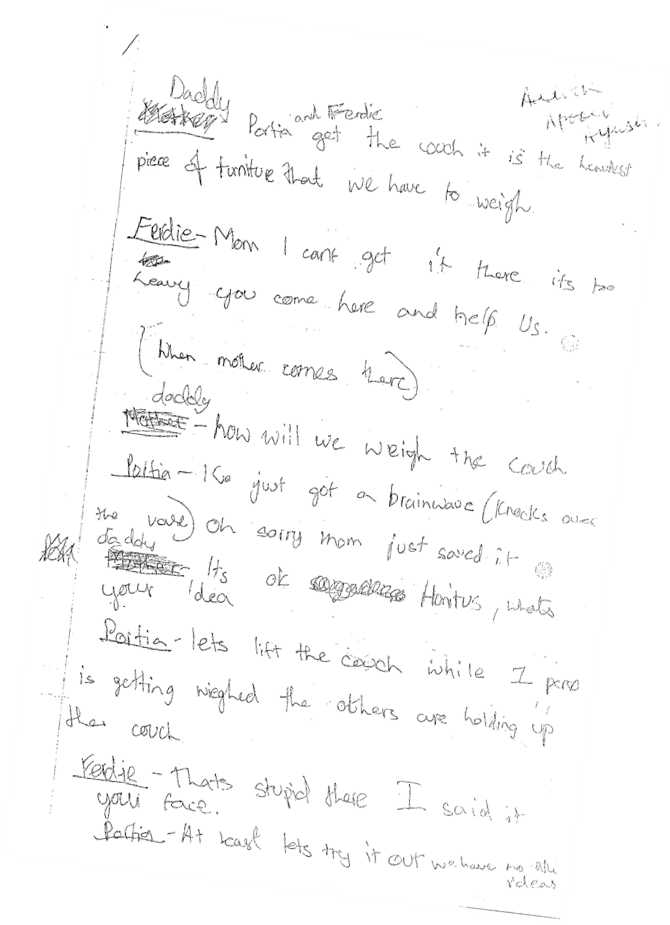 Daddy
Portia and Ferdie get the couch it is the heaviest
piece of furniture that we have to weigh
Ferdie- Mom I cant get it there its too
heavy you come here and help Us.
(When mother comes there)
daddy
Mother - how will we weigh the couch
Portia - Ive just got a brainwave (knocks over
the vase) oh sorry mom just saved it
daddy
Mother- Its ok whats
your idea
Portia - lets lift the couch while 1 perso
is getting wieghed the others are holding up
the couch
Ferdie - Thats stupid there I said it
your face.
Portia - At least lets try it out we have no
ideas